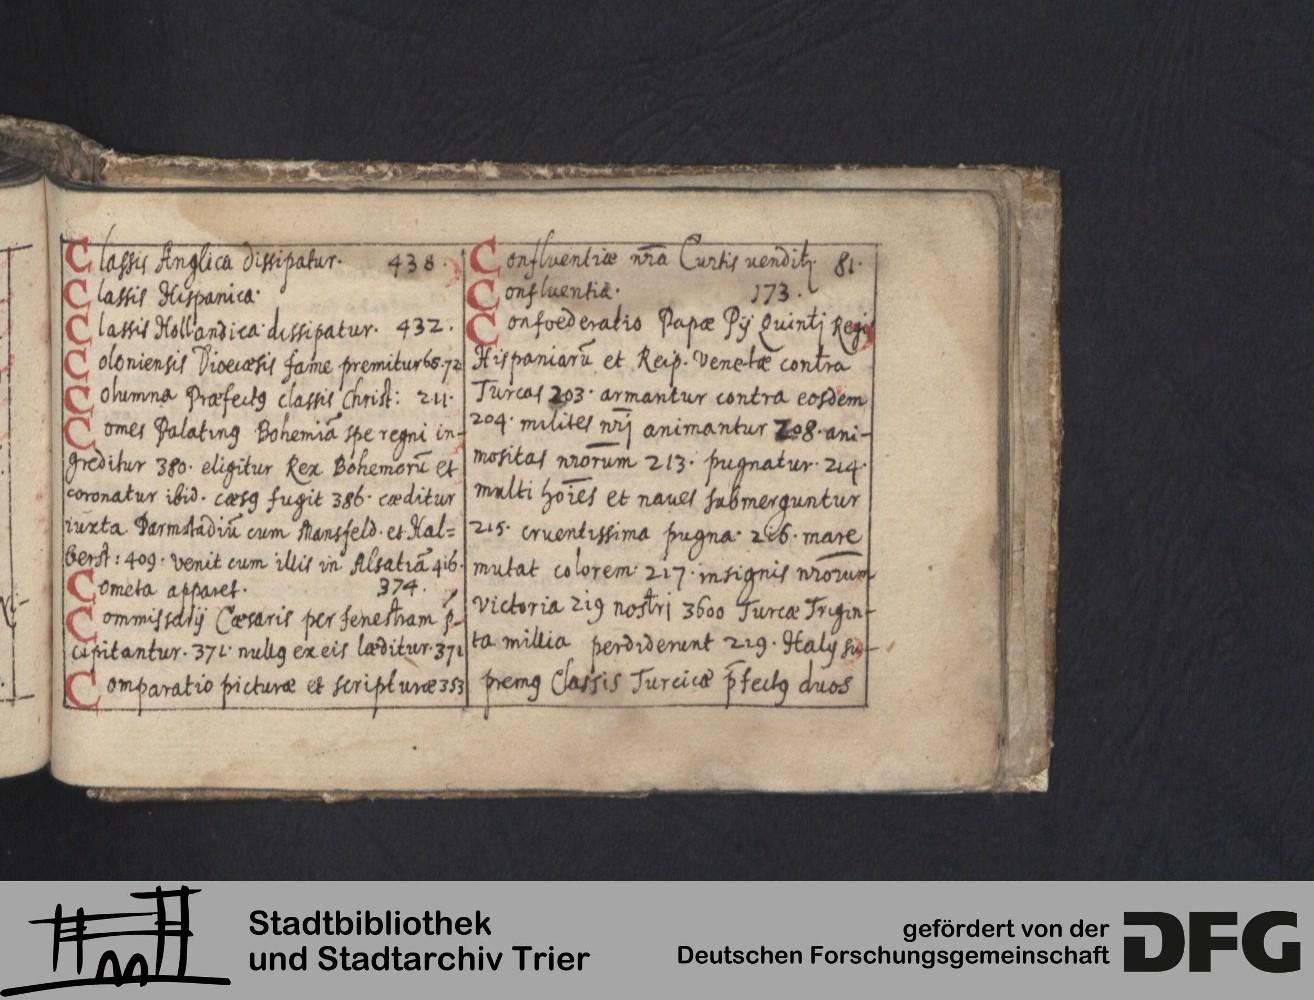 Classis Anglica dissipatur. 438.
Classis Hispanica.
Classis Hollandica dissipatur. 432.
Coloniensis Dioecæsis fame premitur 68. 72
Columna Præfectꝯ classis Christ: 211.
Comes Palatinꝯ Bohemiā spe regni in-
greditur 380. eligitur Rex Bohemorū et
coronatur ibid. cæsꝯ fugit 386. cæditur
iuxta Darmstadiū cum Mansfeld. et Hal=
berst: 409. venit cum illis in Alsatiā 416.
Cometa apparet. 374.
Commissarij Cæsaris per fenestram p̄-
cipitantur. 371. nullꝯ ex eis læditur. 371
Comparatio picturæ et scripturæ 353
Confluentiæ nr̄a Curtis venditꝛ 81.
Confluentia. 173.
Confoederatio Papæ Pij Quintj Regis
Hispaniarū et Reip. Venetæ contra
Turcas 203. armantur contra eosdem
204. milites nr̄j animantur 208. ani-
mositas nr̄orum 213. pugnatur. 214.
multi hoīes et naues submerguntur
215. cruentissima pugna. 216. mare
mutat colorem. 217. insignis nr̄orum
victoria 219 nostri 3600 Turcæ Trigin-
ta millia perdiderunt 219. Italꝯ su-
premꝯ Classis Turcicæ p̄fectꝯ duos
Stadtbibliothek
und Stadtarchiv Trier
gefördert von der
Deutschen Forschungsgemeinschaft
DFG